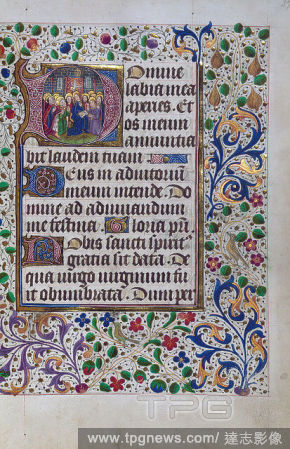 Domine
labia mea
aperies. Et
os meum
annuntia
bit laudem tuam
Deus in adiutoriū
meum intende. Do
mine ad adiuuandum
me festina. Gloria pr̄i.
Nobis sancti spirit9
gratia sit data. De
qua uirgo uirginum fu
it obumbrata. Dum per
TPG
www.tpgnews.com/達志影像